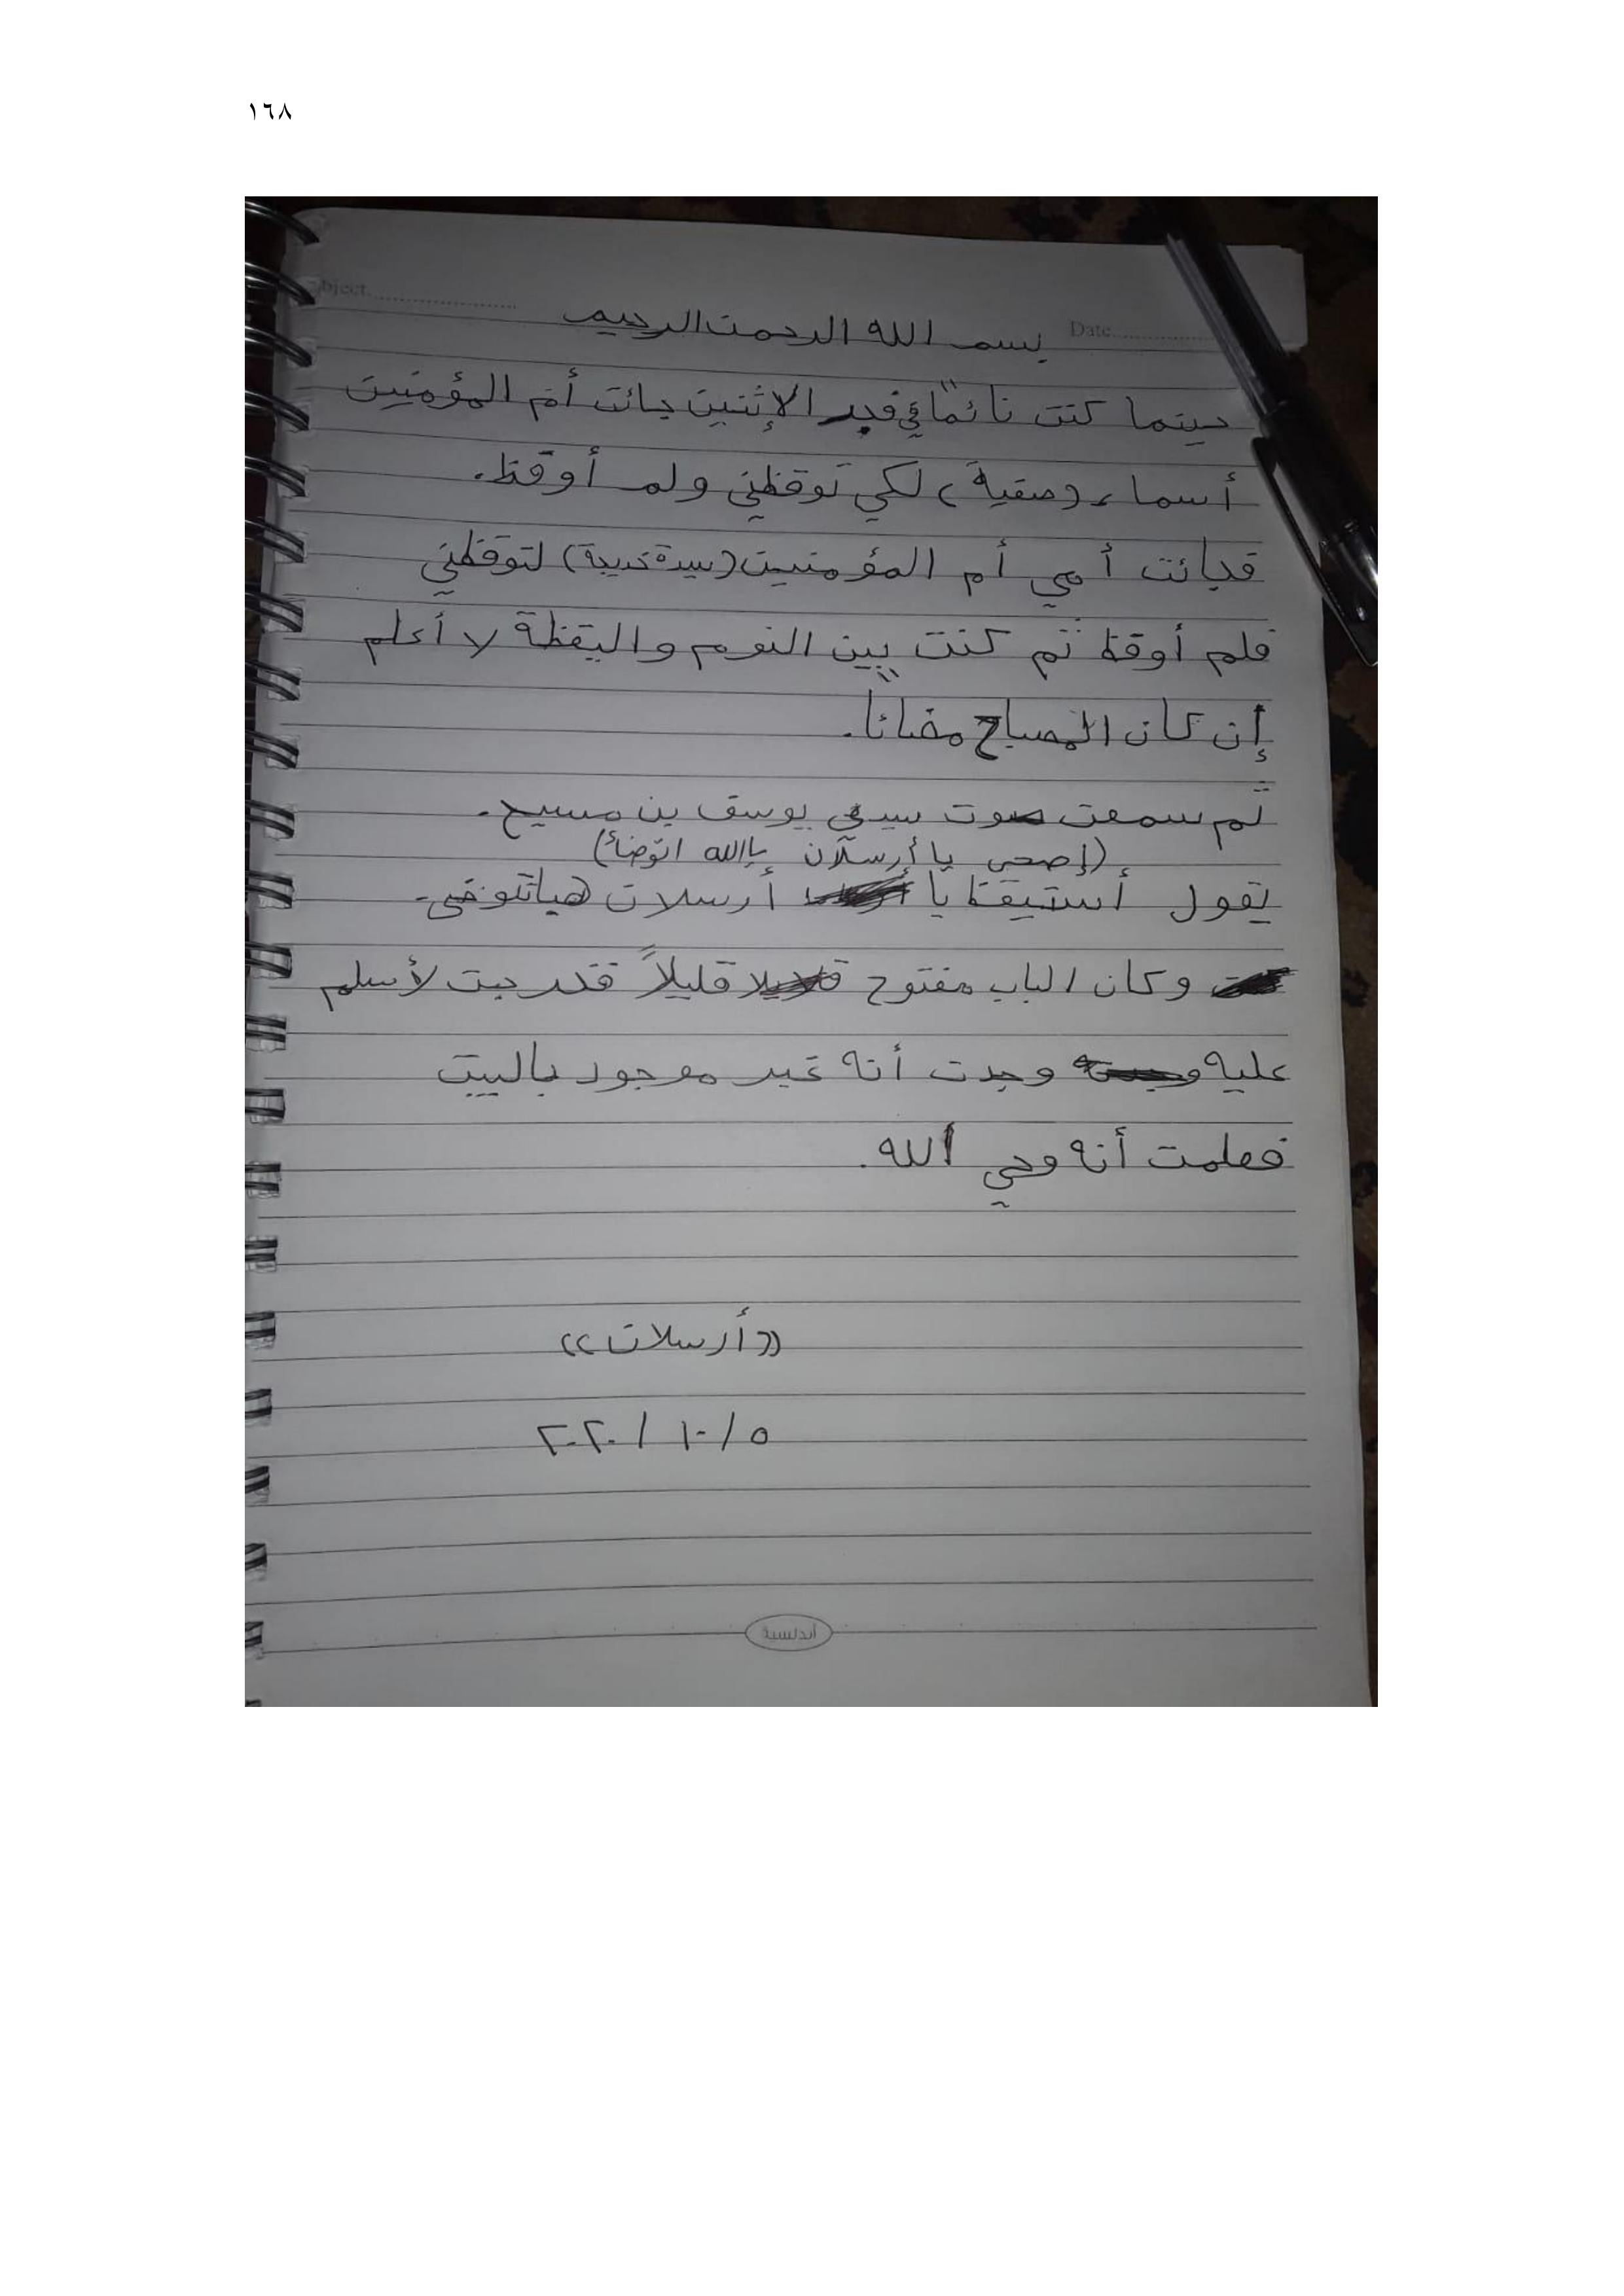 ١٦٨
bject
Date
بسم الله الرحمن الرحيم
حينما كنت نائمًا في فجر الإثنين جائت أم المؤمنين
أسماء (صفية) لكي توقظني ولم أوقظ.
فجائت أمي أم المؤمنين (سيدة خديجة) لتوقظني
فلم أوقظ ثم كنت بين النوم واليقظة لا أعلم
إن كان المصباح مضائا.
ثم سمعت صوت سيدي يوسف بن مسيح.
(إصحى يا أرسلان يالله اتوضأ)
يقول أستيقظ يا أرسلان هيا تتوضى.
وكان الباب مفتوح قليلاً فخرجت لأسلم
عليه وجدت أنه غير موجود بالبيت
فعلمت أنه وحي الله.
((أرسلان))
٥ / ١٠ / ٢٠٢٠
أندلسية